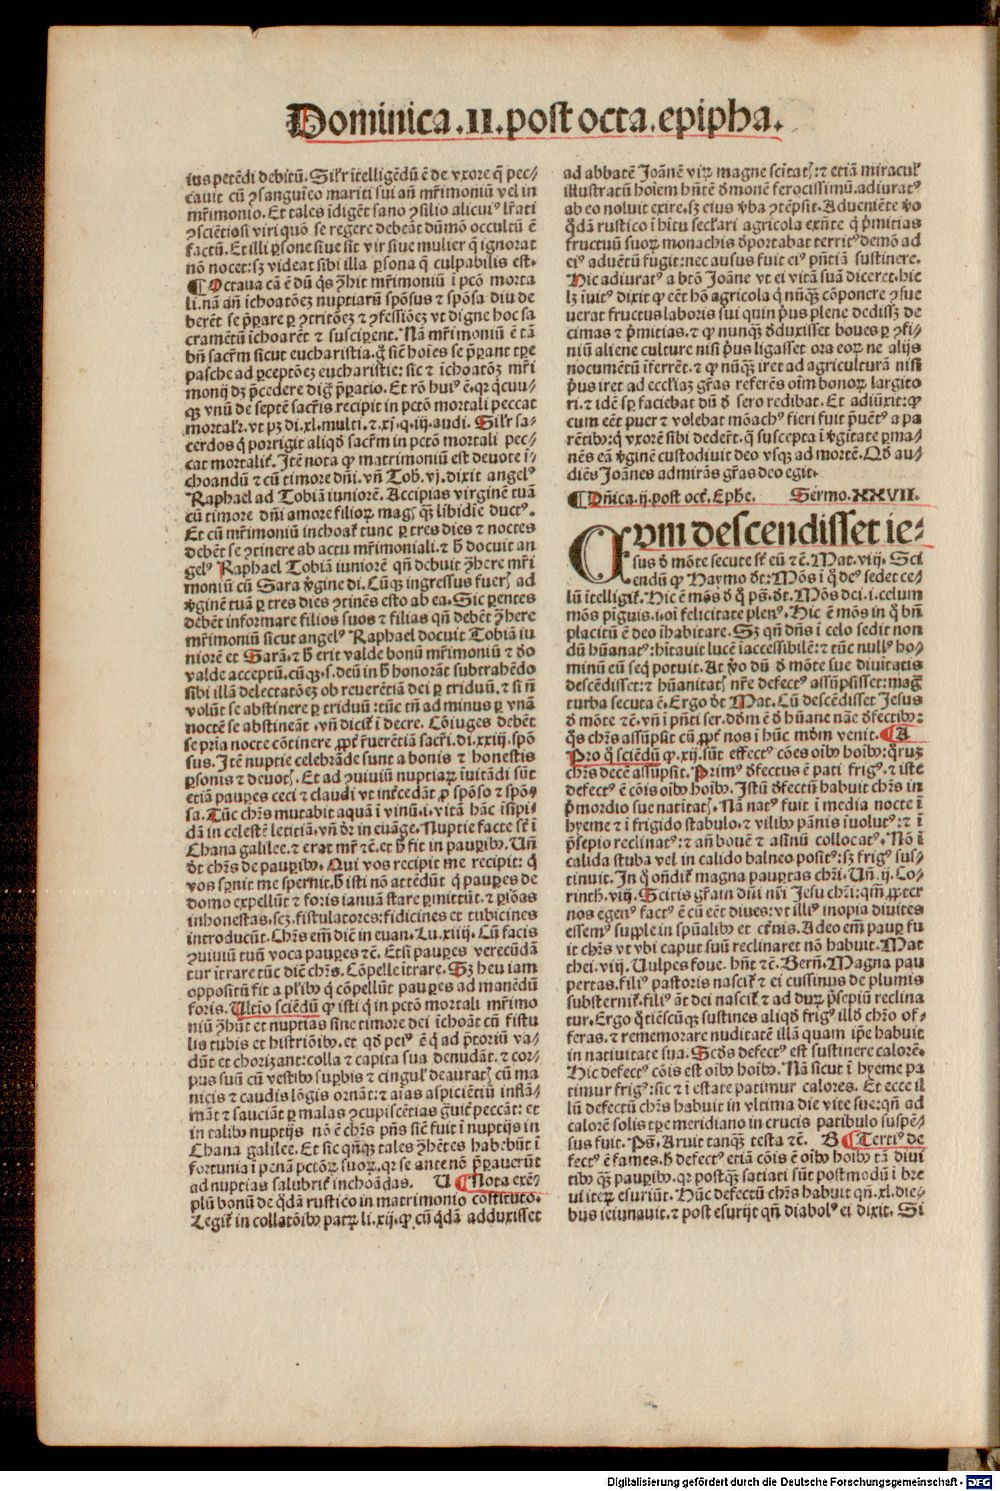 Dominica.II.post octa.epipha.
ius petēdi debitū. Silr ītelligēdū ē de vxore q̄ pec-
cauit cū ꝯsanguīeo mariti sui añ mr̄imoniū vel in
mr̄imonio. Et tales īdigēt sano ꝯsilio alicuiꝰ lr̄ati
ꝯsciētiosi viri quō se regere debeāt dūmō occultū ē
factū. Et illi ꝑsone siue sīt vir siue mulier q̄ ignorat
nō nocet: sꝫ videat sibi illa ꝑsona q̄ culpabilis est.
¶ Octaua cā ē dū q̇s ꝯ̄hit mr̄imoniū ī pctō morta
li. nā añ īchoatōeꝫ nuptiarū spōsus ⁊ spōsa diu de
berēt se p̄ꝑare ꝑ ꝯtritōeꝫ ⁊ ꝯfessiōeꝫ vt digne hoc sa
cramētū īchoarēt ⁊ susciꝑent. Nā mr̄imoniū ē tā
bñ sacr̄m sicut eucharistia. ḡ sic̄ hoīes se p̄ꝑant tꝑe
pasche ad ꝑceptōeꝫ eucharistie: sic ⁊ īchoatōꝫ mr̄i
monij dꝫ p̄cedere dig p̄ꝑatio. Et rō huiꝰ ē. qꝛ q̄cuu-
qꝫ vnū de septē sacr̄is recipit in pctō mortali peccat
mortalr̄. vt pꝫ di. xl. multi. ⁊ .xj. q. iij. audi. Silr sa-
cerdos q̇ porrigit aliqd̄ sacr̄m in pctō mortali pec-
cat mortalit̄. Itē nota ꝙ matrimoniū est deuote ī-
choandū ⁊ cū timore dñi. vñ Tob. vj. dixit angelꝰ
Raphael ad Tobiā iuniorē. Accipias virginē tuā
cū timore dñi amore filioꝝ magꝭ qꝫ libidīe ductꝰ.
Et cū mr̄imoniū inchoat̄ tunc ꝑ tres dies ⁊ noctes
debēt se ꝯtinere ab actu mr̄imoniali. ⁊ h̄ docuit an
gelꝰ Raphael Tobiā iuniorē qñ debuit ꝯ̄here mr̄i
moniū cū Sara v̄gine di. Cūqꝫ ingressus fuerꝭ ad
v̄ginē tuā ꝑ tres dies ꝯtinēs esto ab ea. Sic ꝑentes
debēt informare filios suos ⁊ filias qñ debēt ꝯ̄here
mr̄imoniū sicut angelꝰ Raphael docuit Tobiā iu
niorē et Sarā. ⁊ h̄ erit valde bonū mr̄imoniū ⁊ d̄o
valde acceptū. cūqꝫ. s. deū in h̄ honorāt subtrahēdo
sibi illā delectatōeꝫ ob reuerētiā dei ꝑ triduū. ⁊ si ñ
volūt se abstinere ꝑ triduū: tūc tñ ad minus ꝑ vnā
noctē se abstineāt. vñ dicit̄ ī decre. Cōiuges debēt
se pria nocte cōtinere ꝓpt̄ r̄uerētiā sacr̄i. di. xxiij. spō
sus. Itē nuptie celebrāde sunt a bonis ⁊ honestis
ꝑsonis ⁊ deuotꝭ. Et ad ꝯuiuiū nuptiaꝝ īuitādi sūt
etiā pauꝑes ceci ⁊ claudi vt int̄cedāt ꝓ spōso ⁊ spō-
sa. Tūc chr̄s mutabit aquā ī vinū. i. vitā hāc īsipi-
dā in celestē letitiā. vñ dr̄ in euāge. Nuptie facte st̄ ī
Chana galilee. ⁊ erat mr̄ ⁊c̄. et h̄ fit in pauꝑibꝫ. Vñ
dt̄ chr̄s de pauꝑibꝫ. Qui vos recipit me recipit: q̇
vos sꝑnit me spernit. h̄ isti nō attēdūt q̇ pauꝑes de
domo expellūt ⁊ foris ianuā stare ꝑmittūt. ⁊ ꝑsōas
inhonestas. scꝫ. fistulatores: fidicines et tubicines
introducūt. Chr̄s em̄ dic̄ in euan. Lu. xiiij. Cū facis
ꝯuiuiū tuū voca pauꝑes ⁊c̄. Etsi pauꝑes verecūdā
tur ītrare tūc dic̄ chr̄s. Cōpelle ītrare. Sꝫ heu iam
oppositū fit a pl̄ibꝫ q̇ cōpellūt pauꝑes ad manēdū
foris. Ultio sciēdū ꝙ isti q̇ in pctō mortali mr̄imo
niū ꝯ̄hūt et nuptias sine timore dei īchoāt cū fistu
lis tubis et histriōibꝫ. et qd̄ peiꝰ ē q̇ ad p̄toriū va-
dūt et chorizant: colla ⁊ capita sua denudāt. ⁊ cor-
pus suū cū vestibꝫ suꝑbis ⁊ cingul̄ deauratꝭ cū ma
nicis ⁊ caudis lōgis ornāt: ⁊ aīas aspiciētiū inflā-
māt ⁊ sauciāt ꝑ malas ꝯcupiscētias g̈uit̄ peccāt: et
in talibꝫ nuptijs nō ē chr̄s pn̄s sic̄ fuit ī nuptijs in
Chana galilee. Et sic qn̄qꝫ tales ꝯ̄hētes habebūt ī
fortunia ī penā pctōꝝ suoꝝ. qꝛ se ante nō p̄ꝑauerūt
ad nuptias salubrit̄ inchoādas. U ¶ Nota exē-
plū bonū de q̇dā rustico in matrimonio cōstituto.
Legit̄ in collatōibꝫ patꝝ li. xij. ꝙ cū q̇dā adduxisset
ad abbatē Joānē viꝝ magne scītatꝭ: ⁊ etiā miracul̄
illustratū hoīem hñtē d̄monē ferocissimū. adiuratꝰ
ab eo noluit exire. sꝫ eius v̄ba ꝯtēpsit. Adueniēte v̄o
q̇dā rustico ī hitu scl̄ari agricola exn̄te q̇ p̄mitias
fructuū suoꝝ monachis d̄portabat territꝰ demō ad
eiꝰ aduētū fugit: nec ausus fuit eiꝰ pn̄tiā sustinere.
Hic adiuratꝰ a btō Joāne vt ei vitā suā diceret. hic
lꝫ īuitꝰ dixit ꝙ eēt hō agricola q̇ nūqꝫ cōponere ꝯsue
uerat fructus laboris sui quin p̄us plene dedissꝫ de
cimas ⁊ p̄mitias. ⁊ ꝙ nunqꝫ d̄duxisset boues ꝑ ꝯfi-
niū aliene culture nisi p̄us ligasset ora eoꝝ ne alijs
nocumētū īferrēt. ⁊ ꝙ nūqꝫ iret ad agriculturā nisi
p̄us iret ad eccl̄iaꝫ gr̄as referēs oīm bonoꝝ largito
ri. ⁊ idē sꝑ faciebat dū d̄ sero redibat. Et adiūxit: ꝙ
cum eēt puer ⁊ volebat mōachꝰ fieri fuit p̄uētꝰ a pa
rētibꝫ: q̄ vxorē sibi dederēt. q̄ suscepta ī v̄gitate ꝑma-
nēs eā v̄ginē custodiuit deo vsqꝫ ad mortē. Qd̄ au-
diēs Joānes admirās gr̄as deo egit.
¶ Dn̄ica. ij. post oct̄. Ephe. Sermo. XXVII.
Qvm descendisset ie-
sus d̄ mōte secute st̄ eū ⁊c̄. Mat. viij. Sci
endū ꝙ Haymo dt̄: Mōs ī q̇ deꝰ sedet ce-
lū ītelligit̄. Hic ē mōs d̄ q̇ ps̄. dt̄. Mōs dei. i. celum
mōs piguis. i. oī felicitate plenꝰ. Hic ē mōs in q̇ bn̄
placitū ē deo īhabitare. Sꝫ qñ dn̄s ī celo sedit non
dū hūanatꝰ: hītauit lucē īaccessibilē: ⁊ tūc nullꝰ ho-
minū eū seq̇ potuit. At v̄o dū d̄ mōte sue diuitatis
descēdisset: ⁊ hūanitatꝭ nr̄e defectꝰ assūpsisset: mag
turba secuta ē. Ergo dt̄ Mat. Cū descēdisset Jesus
d̄ mōte ⁊c̄. vñ ī pn̄ti ser. d̄m ē d̄ hūane nāe d̄fectibꝫ:
q̇s chr̄s assūpsit cū ꝓpt̄ nos ī hūc mdm̄ venit. ¶ A
Pro q̇ sciēdū ꝙ. xij. sūt effectꝰ cōes oībꝫ hoībꝫ: q̄rūꝫ
chr̄s decē assūpsit. Primꝰ d̄fectus ē pati frigꝰ. ⁊ iste
defectꝰ ē cōis oībꝫ hoībꝫ. Istū d̄fectū habuit chr̄s in
p̄mordio sue natītatꝭ. Nā natꝰ fuit ī media nocte ī
hyeme ⁊ ī frigido stabulo. ⁊ vilibꝫ pānis īuolutꝰ: ⁊ ī
p̄sepio reclinatꝰ: ⁊ añ bouē ⁊ asinū collocatꝰ. Nō ī
calida stuba vel in calido balneo positꝰ: sꝫ frigꝰ sus-
tinuit. In q̇ oñdit̄ magna pauꝑtas chr̄i. Uñ. ij. Co-
rinth. viij. Scitis gr̄aꝫ dn̄i nr̄i Jesu chr̄i: qm̄ ꝓpter
nos egenꝰ factꝰ ē cū eēt diues: vt illiꝰ inopia diuites
essemꝰ supple in spūalibꝫ et et̄nis. Adeo em̄ pauꝑ fu
it chr̄s vt vbi caput suū reclinaret nō habuit. Mat
thei. viij. Vulpes foue. hñt ⁊c̄. Bern̄. Magna pau
pertas. filiꝰ pastoris nascit̄ ⁊ ei cussinus de plumis
substernit̄. filiꝰ āt dei nascit̄ ⁊ ad duꝝ p̄sepiū reclina
tur. Ergo q̄tiēscūqꝫ sustines aliqd̄ frigꝰ illd̄ chr̄o of-
feras. ⁊ rememorare nuditatē illā quam ip̄e habuit
in natiuitate sua. Scd̄s defectꝰ est sustinere calorē.
Hic defectꝰ cōis est oībꝫ hoībꝫ. Nā sicut ī hyeme pa
timur frigꝰ: sic ⁊ ī estate patimur calores. Et ecce il
lū defectū chr̄s habuit in vltima die vite sue: qñ ad
calorē solis tꝑe meridiano in crucis patibulo suspē-
sus fuit. Ps̄. Aruit tanqꝫ testa ⁊c̄. B ¶ Tertiꝰ de
fectꝰ ē fames. h̄ defectꝰ etiā cōis ē oībꝫ hoībꝫ tā diui
tibꝫ qꝫ pauꝑibꝫ. qꝛ postqꝫ satiati sūt postmodū ī bre
ui iteꝝ esuriūt. Hūc defectū chr̄s habuit qñ. xl. die-
bus ieiunauit. ⁊ post esurijt qñ diabolꝰ ei dixit. Si
Digitalisierung gefördert durch die Deutsche Forschungsgemeinschaft - DFG